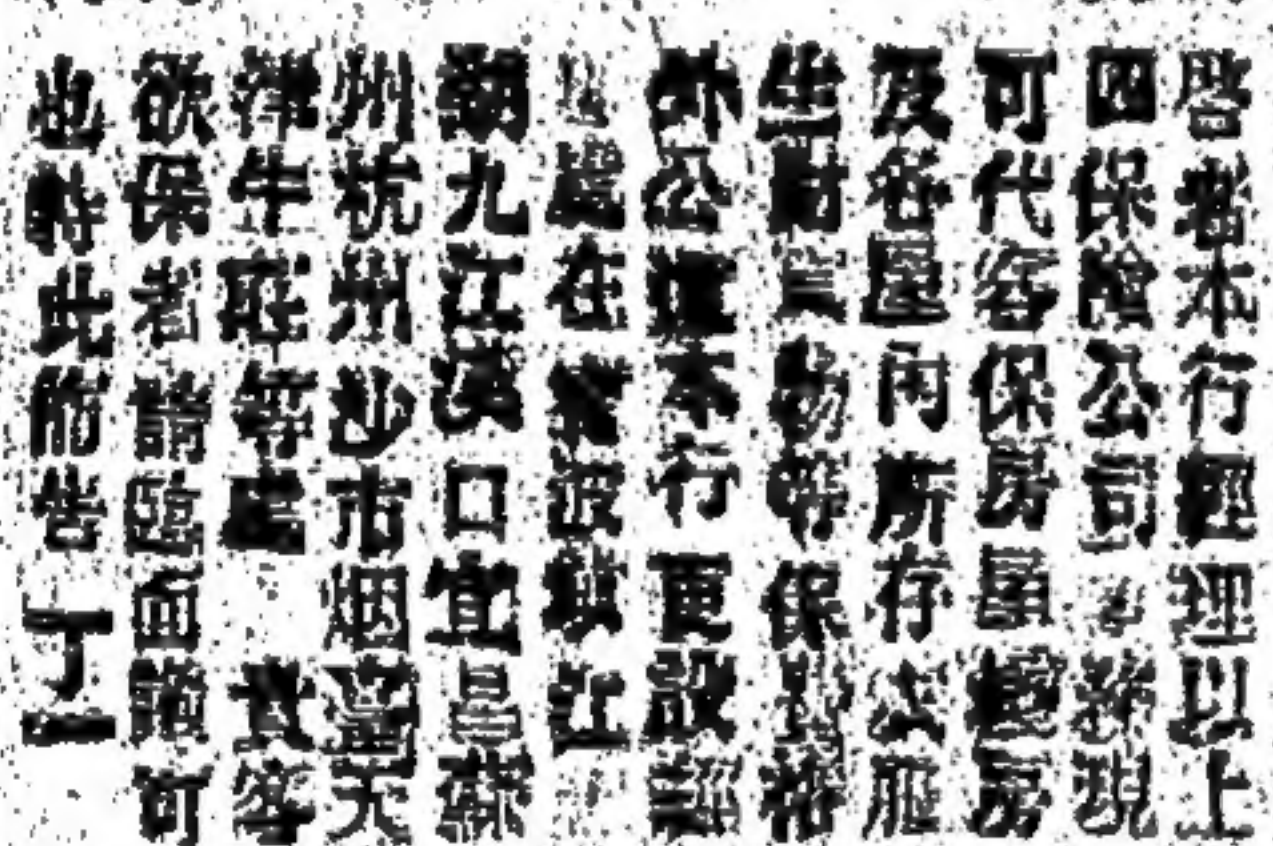 啓者本行經理以上
四保險公司事務現
可代客保房屋棧房
及各屋內所存
生財貨物等保
外公道本行更設經
處在寧波鎮江
湖九江漢口宜昌蘇
州杭州沙市烟臺天
津牛莊等處貴客
欲保者請臨面議可
也特此佈告